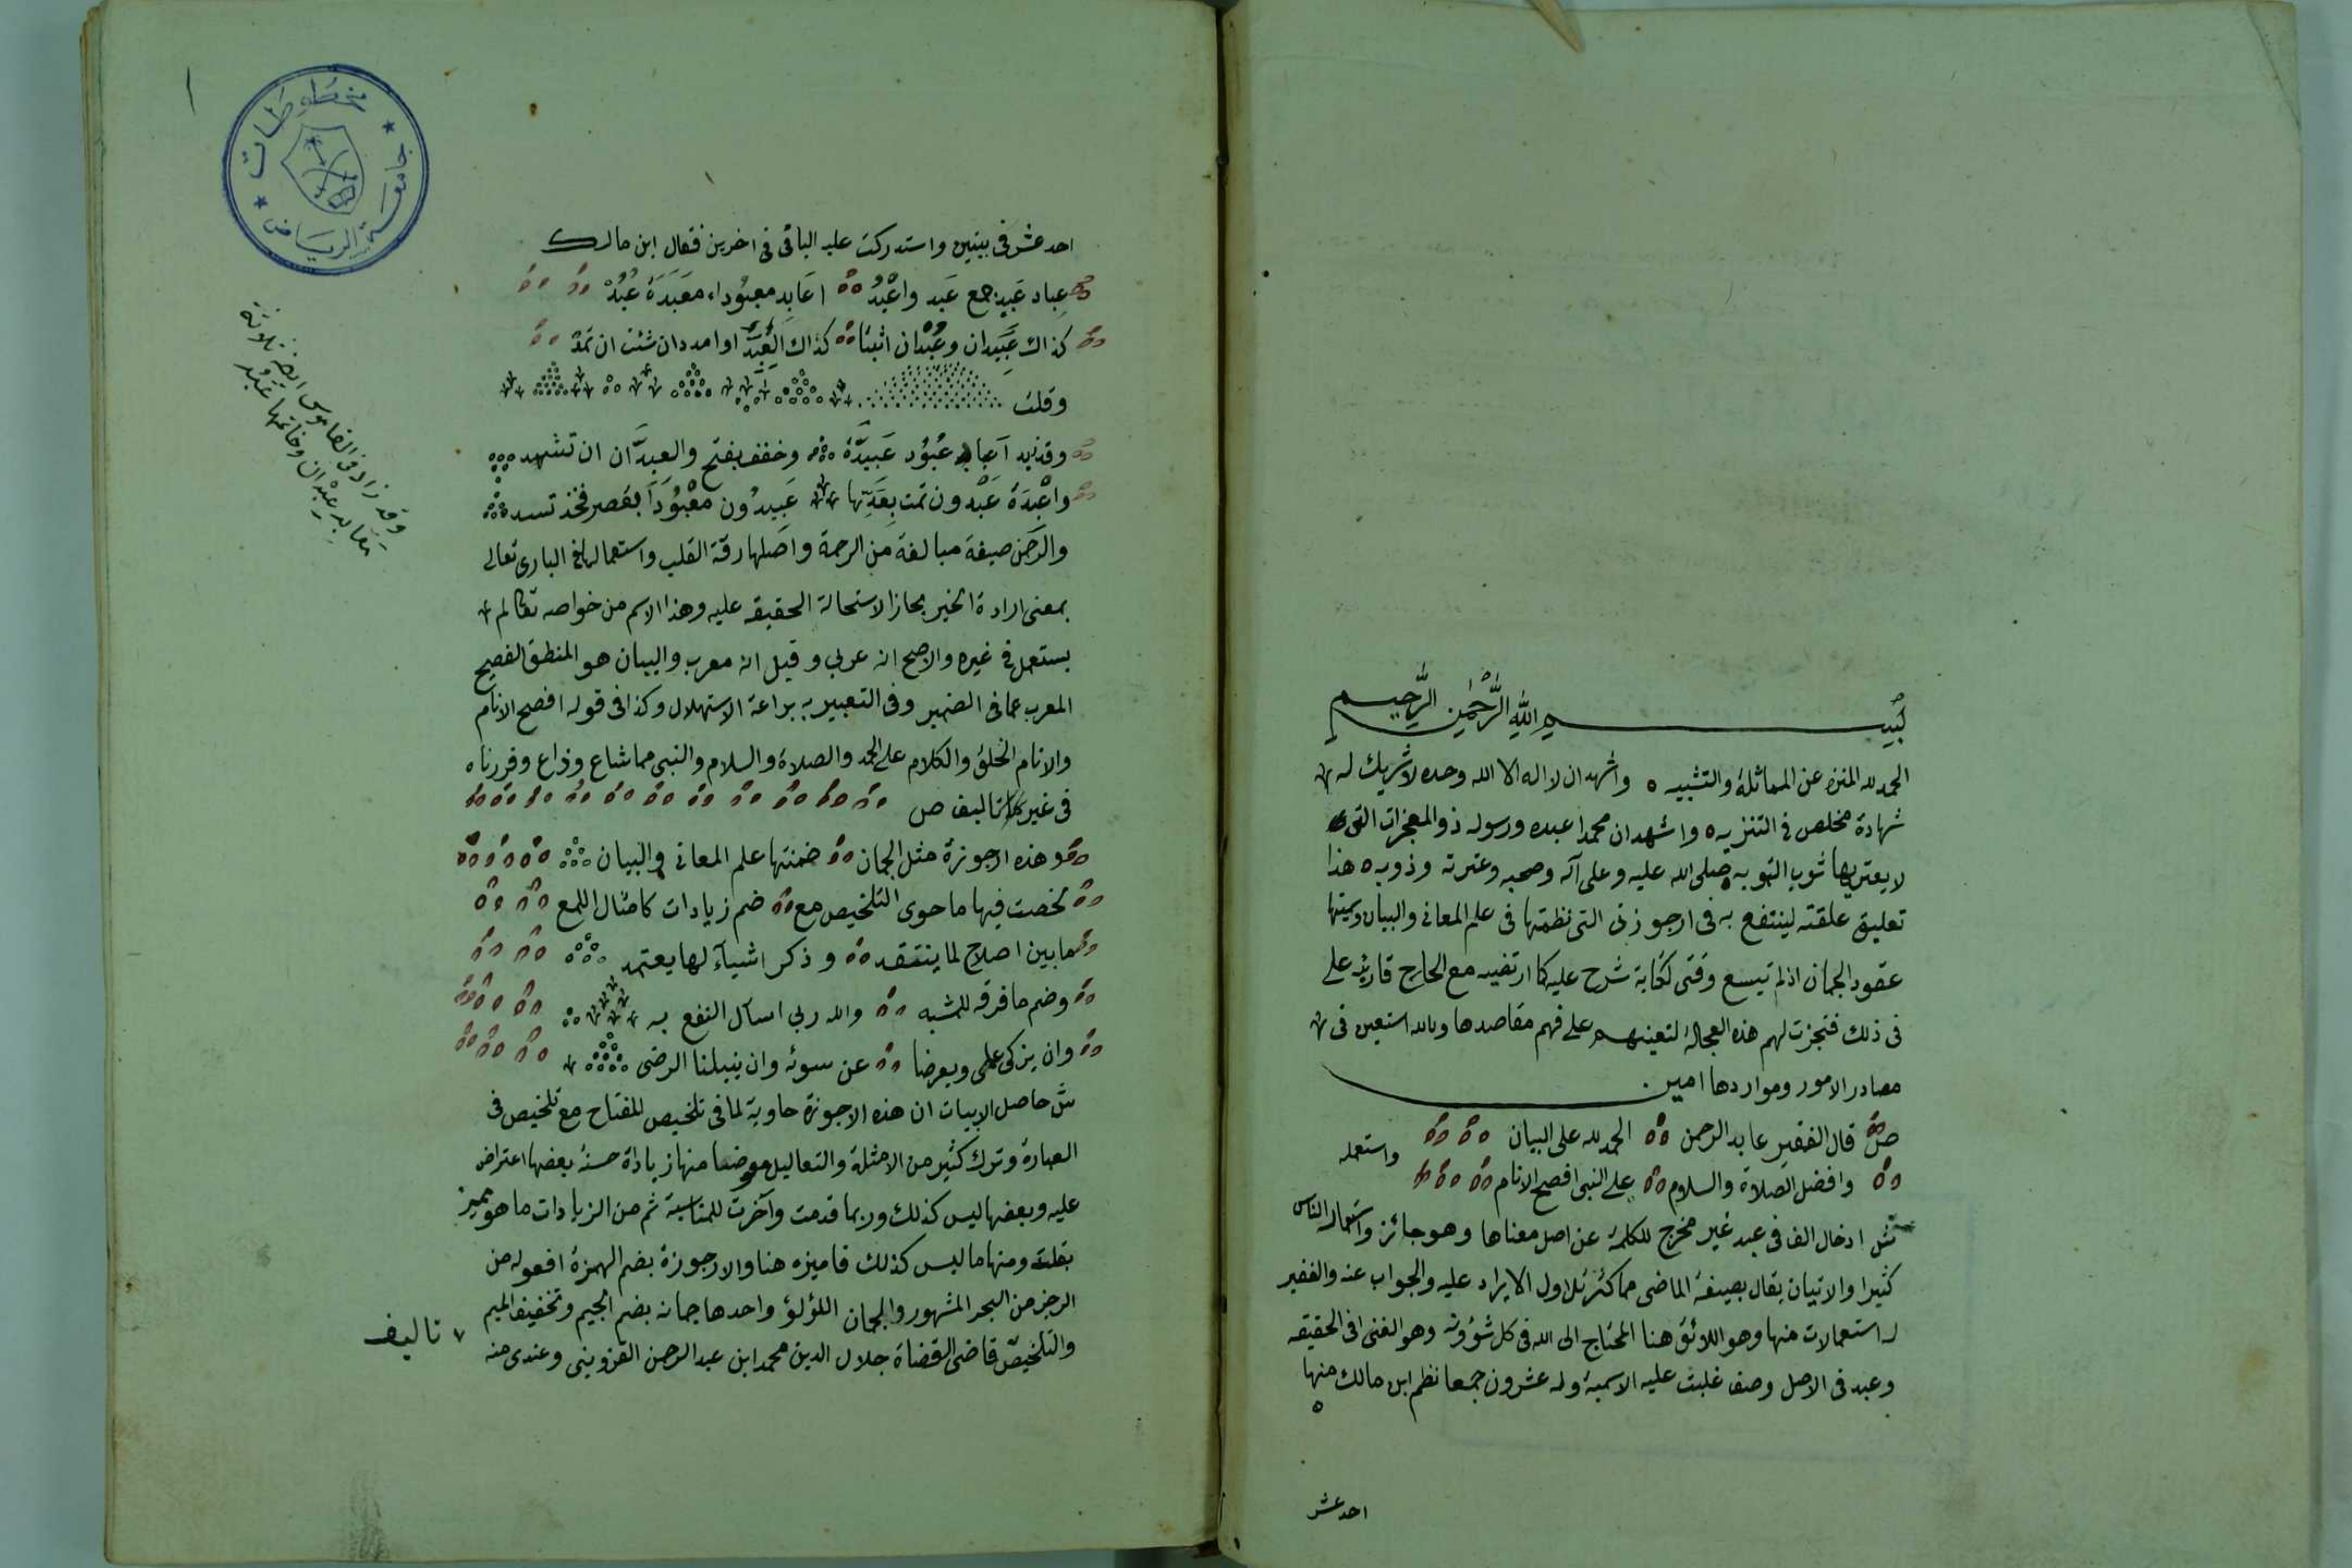 بسم الله الرحمن الرحيم
الحمد لله المنزه عن المماثلة والتشبيه واشهد ان لا اله الا الله وحده لا شريك له
شهادة مخلص في التنزيه واشهد ان محمدا عبده ورسوله ذو المعجزات التي
لا يعتريها شوب التمويه صلى الله عليه وعلى آله وصحبه وعترته وذويه هذا
تعليق علقته لينتفع به في ارجوزتي التي نظمتها في علم المعاني والبيان وسميتها
عقود الجمان اذ لم تيسع وقتي لكتابة شرح عليه كما ارتضيه مع الحاح قارئيه على
في ذلك فنجزت لهم هذه العجالة لتعينهم على فهم مقاصدها وبالله استعين في
مصادر الامور ومواردها امين
ص قال الفقير عابد الرحمن الحمد لله على البيان
وافضل الصلاة والسلام على النبي افصح الانام
واستعمله
ش ادخال الف في عبد غير مخرج للكلمة عن اصل معناها وهو جائز واستعماله الناس
كثيرا والاتيان يقال بصيغة الماضي مما كثر تداول الايراد عليه والجواب عنه والفقير
له استعمالات منها وهو اللائق هنا المحتاج الى الله في كل شؤونه وهو الغنى في الحقيقه
وعبد في الاصل وصف غلبت عليه الاسمية وله عشرون جمعا نظم ابن مالك منها
احد عشر
احد عشر في بيتين واستدركت عليه الباقي في اخرين فقال ابن مالك
عباد عبيد جمع عبد واعبد اعابد معبوداء معبدة عبد
كذاك عبدان وعبدان اثبتا كذاك العبدى وامدد ان شئت ان تمد
وقلت
وقد زيد اعباد عبود عبدة وخفف بفتح والعبدان ان تشهد
واعبدة عبدون تمت بعدها عبيدون معبودا بقصر فخذ تسد
والرحمن صيغة مبالغة من الرحمة واصلها رقة القلب واستعمالها في الباري تعالى
بمعنى ارادة الخير مجاز الاستحالة الحقيقه عليه وهذا الاسم من خواصه تعالى لم
يستعمل في غيره والاصح انه عربي وقيل انه معرب والبيان هو المنطق الفصيح
المعرب عما في الضمير وفي التعبير به براعة الاستهلال وكذا في قوله افصح الانام
والانام الخلق والكلام على الحمد والصلاة والسلام والنبي مما شاع وذاع وقررناه
في غير تاليف ص
وهذه ارجوزة مثل الجمان ضمنتها علم المعاني والبيان
لخصت فيها ما حوى التلخيص مع ضم زيادات كامثال اللمع
ما بين اصلاح لما ينتقد وذكر اشياء لها يعتمد
وضم ما فرقه للمشبه والله ربي اسأل النفع به
وان يزكي عملي ويعرضا عن سوئه وان ينيلنا الرضى
ش حاصل الابيات ان هذه الارجوزة حاوية لما في تلخيص المفتاح مع تلخيص في
العبارة وترك كثير من الامثلة والتعاليل معوضا منها زيادة حسنة بعضها اعتراض
عليه وبعضها ليس كذلك وربما قدمت واخرت للمناسبة ثم من الزيادات ما هو مميز
بقلت ومنها ما ليس كذلك فاميزه هنا والارجوزة بضم الهمزة افعوله من
الرجز من البحر المشهور والجمان اللؤلؤ واحدها جمانه بضم الجيم وتخفيف الميم
والتلخيص قاضي القضاة جلال الدين محمد ابن عبد الرحمن القزويني وعندي منه
تاليف
وقد زاد في القاموس ايضا ثلاثة
معابد عبدان وخاتمها عبد
مخطوطات
جامعة الرياض
١